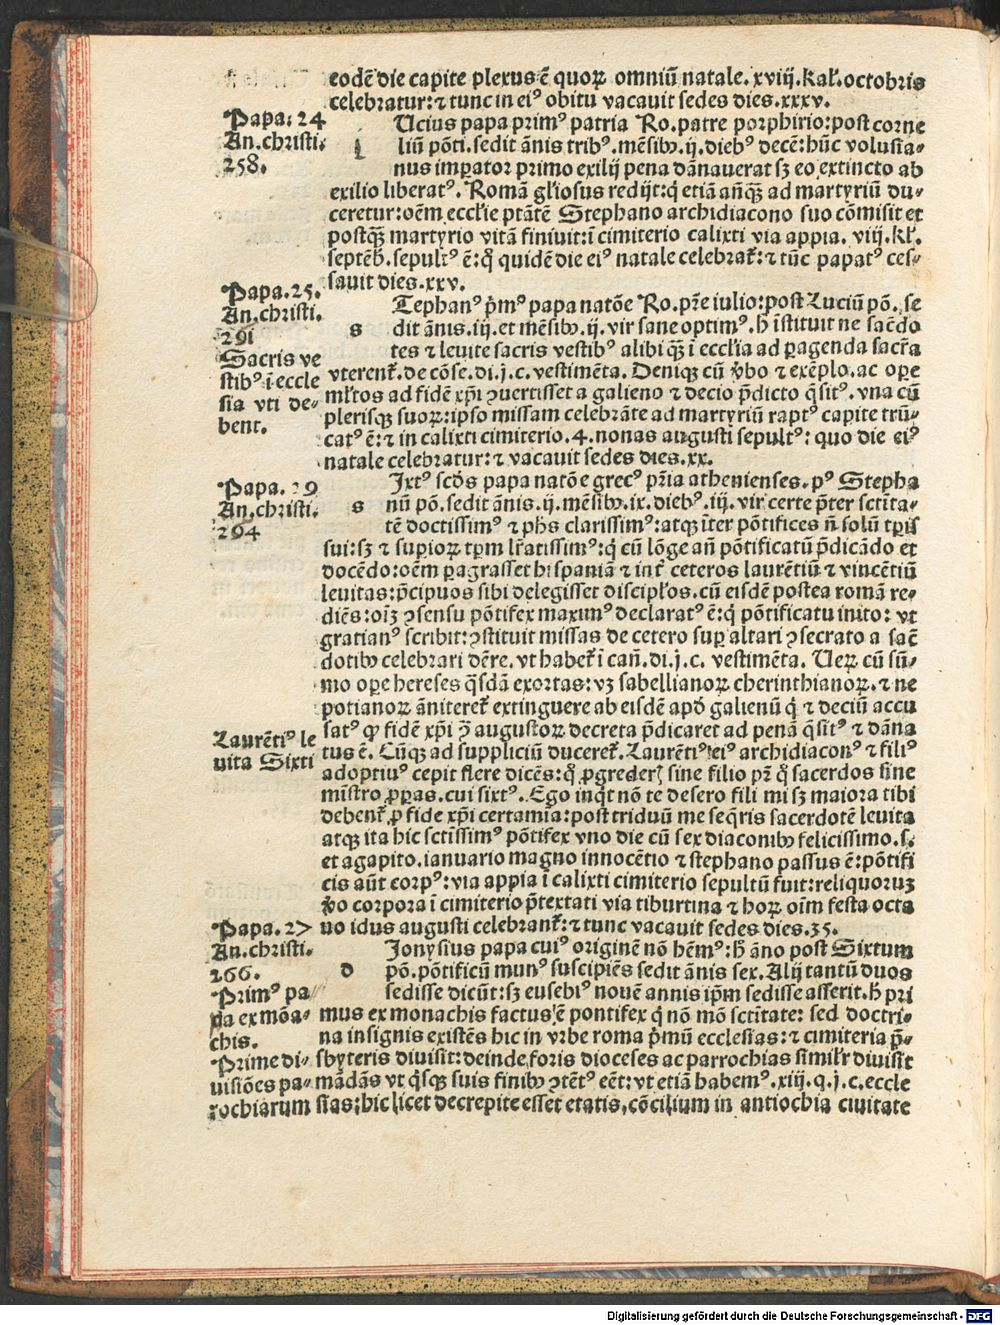 eodē die capite plexus ē quoꝝ omniū natale. xviij. kal̄. octobris
celebratur: ⁊ tunc in eiꝰ obitu vacauit sedes dies. xxxv.
Papa. 24
An. christi.
258.
l
Ucius papa primꝰ patria Ro. patre porphirio: post corne
liū pōti. sedit ānis tribꝰ. mēsibꝫ. ij. diebꝰ decē: hūc volusia⸗
nus imꝑator primo exilij pena dānauerat sꝫ eo extincto ab
exilio liberatꝰ. Romā gl̄iosus redijt: q̇ etiā añqꝫ ad martyriū du⸗
ceretur: oēm eccl̄ie ptātē Stephano archidiacono suo cōmisit et
postqꝫ martyrio vitā finiuit: ī cimiterio calixti via appia. viij. kl̄.
septēb̄. sepultꝰ ē: q̄ quidē die eiꝰ natale celebrat̄: ⁊ tūc papatꝰ ces⸗
sauit dies. xxv.
Papa. 25.
An. christi.
291
Sacris ve
stibꝰ ī eccle
sia vti de⸗
bent.
s
Tephanꝰ p̄mꝰ papa natōe Ro. pr̄e iulio: post Luciū pō. se
dit ānis. iij. et mēsibꝫ. ij. vir sane optimꝰ. h̄ īstituit ne sacēdo
tes ⁊ leuite sacris vestibꝰ alibi qꝫ ī eccl̄ia ad ꝑagenda sacr̄a
vterent̄. de cōse. di. j. c. vestimēta. Deniqꝫ cū v̄bo ⁊ exēplo. ac ope
ml̄tos ad fidē xp̄i ꝯuertisset a galieno ⁊ decio p̄dicto q̄sitꝰ. vna cū
plerisqꝫ suoꝝ: ipso missam celebrāte ad martyriū raptꝰ capite trū⸗
catꝰ ē: ⁊ in calixti cimiterio. 4. nonas augusti sepultꝰ: quo die eiꝰ
natale celebratur: ⁊ vacauit sedes dies. xx.
Papa. 29
An. christi.
264
s
Ixtꝰ scd̄s papa natōe grecꝰ pr̄ia athenienses. pꝰ Stepha
nū pō. sedit ānis. ij. mēsibꝫ. ix. diebꝰ. iij. vir certe p̄ter sctīta⸗
tē doctissimꝰ ⁊ ph̄s clarissimꝰ: atqꝫ īter pōtifices n̄ solū tp̄is
sui: sꝫ ⁊ superioꝝ tp̄m lr̄atissimꝰ: q̇ cū lōge añ pōtificatū p̄dicādo et
docēdo: oēm ꝑagrasset hispaniā ⁊ int̄ ceteros laurētiū ⁊ vincētiū
leuitas: p̄cipuos sibi delegisset discipl̄os. cū eisdē postea romā re⸗
diēs: oīꝫ ꝯsensu pōtifex maximꝰ declaratꝰ ē: q̇ pōtificatu inito: vt
gratianꝰ scribit: ꝯstituit missas de cetero super altari ꝯsecrato a sacē
dotibꝫ celebrari dēre. vt habet̄ ī cañ. di. j. c. vestimēta. Ueꝝ cū sū⸗
mo ope hereses q̄sdā exortas: vꝫ sabellianoꝝ cherinthianoꝝ. ⁊ ne
potianoꝝ ānitereť extinguere ab eisdē apd̄ galienū q̇ ⁊ deciū accu
satꝰ ꝙ fidē xp̄i ꝯ̄ augustoꝝ decreta p̄dicaret ad penā q̄sitꝰ ⁊ dāna
Laurētiꝰ le
uita Sixti
tus ē. Cūqꝫ ad suppliciū duceret̄. Laurētiꝰ eiꝰ archidiaconꝰ ⁊ filiꝰ
adoptiuꝰ cepit flere dicēs: q̊ ꝓgrederꝭ sine filio pr̄ q̊ sacerdos sine
mīstro ꝓꝑas. cui sixtꝰ. Ego inq̄t nō te desero fili mi sꝫ maiora tibi
debent̄ ꝓ fide xp̄i certamia: post triduū me seq̄ris sacerdotē leuita
atqꝫ ita hic sctīssimꝰ pōtifex vno die cū sex diaconibꝫ felicissimo. s.
et agapito. ianuario magno innocētio ⁊ stephano passus ē: pōtifi
cis aūt corpꝰ: via appia ī calixti cimiterio sepultū fuit: reliquoruꝫ
v̄o corpora ī cimiterio p̄textati via tiburtina ⁊ hoꝝ oīm festa octa
uo idus augusti celebrant̄: ⁊ tunc vacauit sedes dies. 35.
Papa. 27
An. christi.
266.
Primꝰ pa
pa ex mōa⸗
chis.
Prime di⸗
uisiōes pa⸗
rochiarum
d
Ionysius papa cuiꝰ originē nō hēmꝰ: h̄ āno post Sixtum
pō. pōtificū munꝰ suscipiēs sedit ānis sex. Alij tantū duos
sedisse dicūt: sꝫ eusebiꝰ nouē annis ip̄m sedisse asserit. h̄ pri
mus ex monachis factus ē pontifex q̇ nō mō sctītate: sed doctri⸗
na insignis existēs hic in vrbe roma p̄mū ecclesias: ⁊ cimiteria p̄⸗
sbyteris diuisit: deinde foris dioceses ac parrochias simil̄r diuisit
mādās vt q̄sqꝫ suis finibꝫ ꝯtētꝰ eēt: vt etiā habemꝰ. xiij. q. j. c. eccle
sias: hic licet decrepite esset etatis, cōcilium in antiochia ciuitate
Digitalisierung gefördert durch die Deutsche Forschungsgemeinschaft - DFG